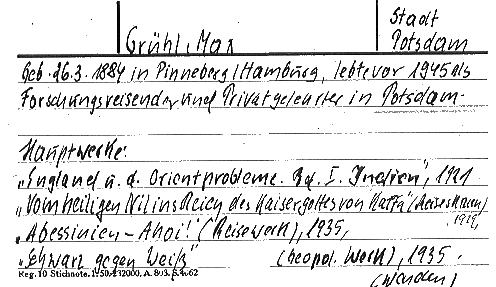 Stadt
Grühl, Max Potsdam
Geb. 26.3.1884 in Pinneberg/Hamburg, lebte vor 1945 als
Forschungsreisender und Privatgelehrter in Potsdam.
Hauptwerke:
„England u. d. Orientprobleme. Bd. I. Indien", 1921
„Vom heiligen Nil ins Reich des Kaisergottes von Kaffa" (Reisewerk)
1929,
„Abessinien - Ahoi!" (Reisewerk), 1935,
„Schwarz gegen Weiß" (Geopol. Werk), 1935.
Reg. 10 Stichnote. 1.50.
(wenden)